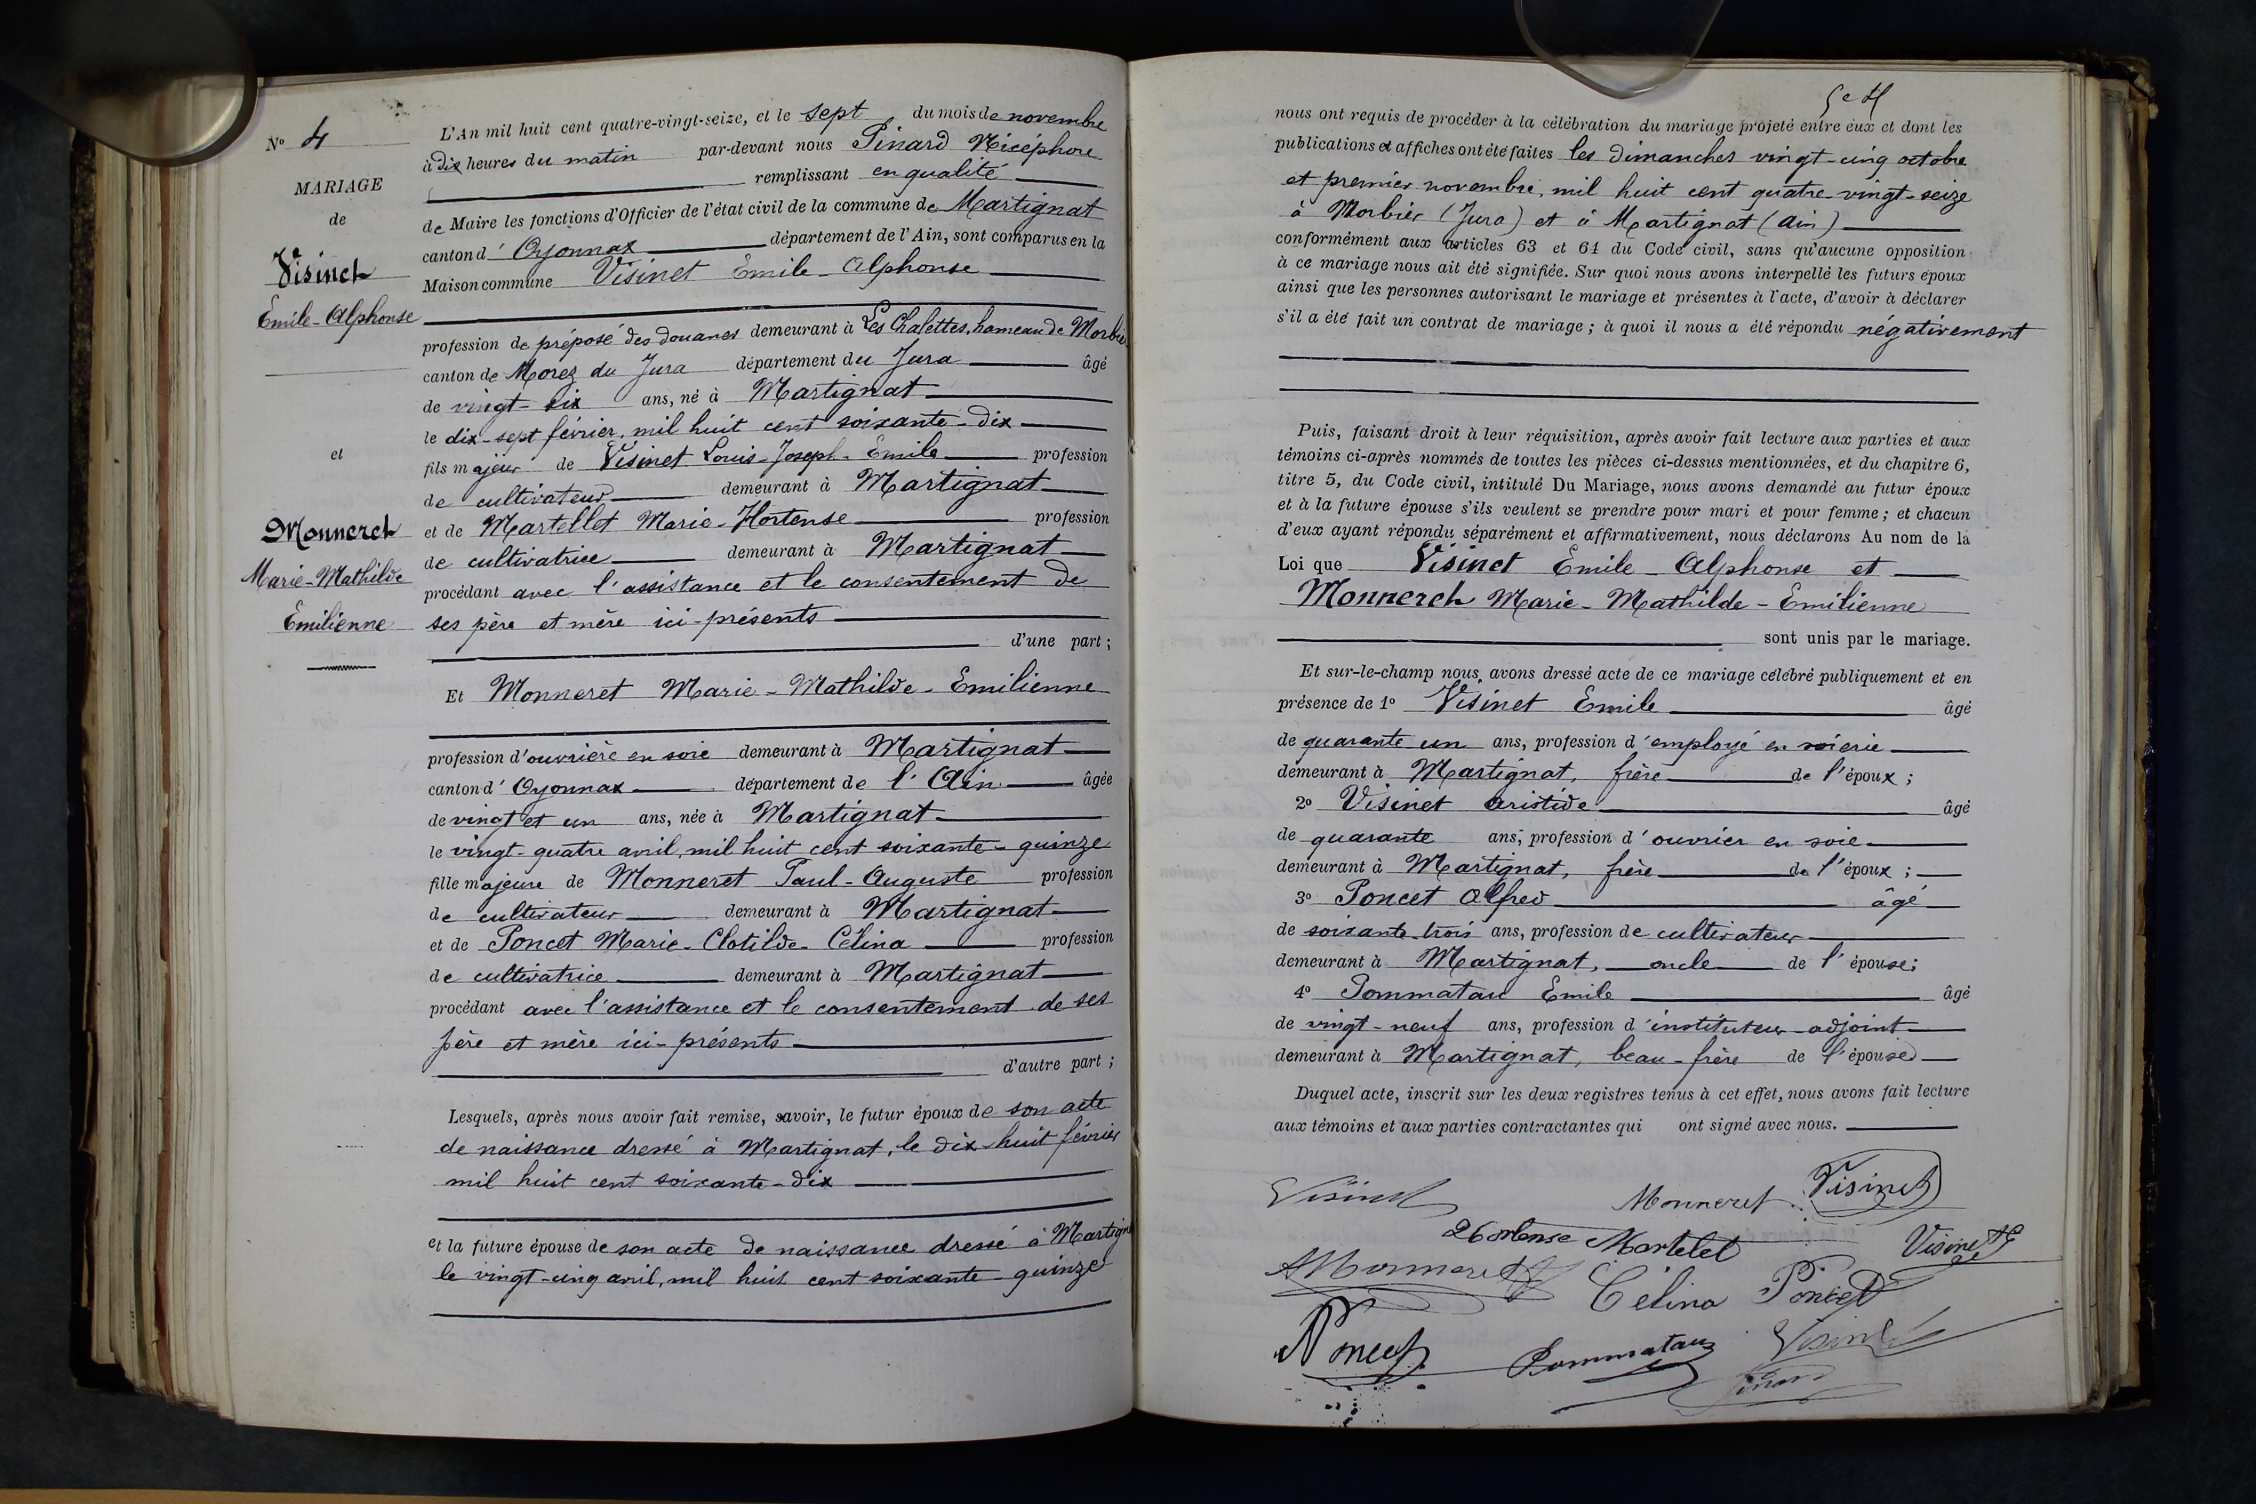 N° 4
MARIAGE
de
Visinet
Emile-Alphonse
et
Monneret
Marie-Mathilde
Emilienne
L'An mil huit cent quatre-vingt-seize, et le sept du mois de novembre
à dix heures du matin par-devant nous Pinard Nicéphore
remplissant en qualité
de Maire les fonctions d'Officier de l'état civil de la commune de Martignat
canton d'Oyonnax département de l'Ain, sont comparus en la
Maison commune Visinet Emile-Alphonse
profession de préposé des douanes demeurant à Les Chalettes, hameau de Morbier
canton de Morez du Jura département du Jura âgé
de vingt-six ans, né à Martignat
le dix-sept février, mil huit cent soixante-dix
fils majeur de Visinet Louis-Joseph-Emile profession
de cultivateur demeurant à Martignat
et de Martellet Marie-Hortense profession
de cultivatrice demeurant à Martignat
procédant avec l'assistance et le consentement de
ses père et mère ici-présents
d'une part ;
Et Monneret Marie-Mathilde-Emilienne
profession d'ouvrière en soie demeurant à Martignat
canton d'Oyonnax département de l'Ain âgée
de vingt et un ans, née à Martignat
le vingt-quatre avril, mil huit cent soixante-quinze
fille majeure de Monneret Paul-Auguste profession
de cultivateur demeurant à Martignat
et de Poncet Marie-Clotilde-Célina profession
de cultivatrice demeurant à Martignat
procédant avec l'assistance et le consentement de ses
père et mère ici-présents
d'autre part ;
Lesquels, après nous avoir fait remise, savoir, le futur époux de son acte
de naissance dressé à Martignat, le dix-huit février
mil huit cent soixante-dix
et la future épouse de son acte de naissance dressé à Martigna
le vingt-cinq avril, mil huit cent soixante-quinze
nous ont requis de procéder à la célébration du mariage projeté entre eux et dont les
publications et affiches ont été faites les dimanches vingt-cinq octobre
et premier novembre, mil huit cent quatre-vingt-seize
à Morbier (Jura) et à Martignat (Ain)
conformément aux articles 63 et 64 du Code civil, sans qu'aucune opposition
à ce mariage nous ait été signifiée. Sur quoi nous avons interpellé les futurs époux
ainsi que les personnes autorisant le mariage et présentes à l'acte, d'avoir à déclarer
s'il a été fait un contrat de mariage ; à quoi il nous a été répondu négativement
Puis, faisant droit à leur réquisition, après avoir fait lecture aux parties et aux
témoins ci-après nommés de toutes les pièces ci-dessus mentionnées, et du chapitre 6,
titre 5, du Code civil, intitulé Du Mariage, nous avons demandé au futur époux
et à la future épouse s'ils veulent se prendre pour mari et pour femme ; et chacun
d'eux ayant répondu séparément et affirmativement, nous déclarons Au nom de la
Loi que Visinet Emile-Alphonse et
Monneret Marie-Mathilde-Emilienne
sont unis par le mariage.
Et sur-le-champ nous avons dressé acte de ce mariage célébré publiquement et en
présence de 1° Visinet Emile âgé
de quarante un ans, profession d'employé en soierie
demeurant à Martignat, frère de l'époux ;
2° Visinet Aristide âgé
de quarante ans, profession d'ouvrier en soie
demeurant à Martignat, frère de l'époux ;
3° Poncet Alfred âgé
de soixante-trois ans, profession de cultivateur
demeurant à Martignat, oncle de l'épouse ;
4° Pommatau Emile âgé
de vingt-neuf ans, profession d'instituteur-adjoint
demeurant à Martignat, beau-frère de l'épouse
Duquel acte, inscrit sur les deux registres tenus à cet effet, nous avons fait lecture
aux témoins et aux parties contractantes qui ont signé avec nous.
Visinet Monneret Visinet
Hortense Martelet Visinet
Monneret Célina Poncet
Poncet Pommatau Visinet
Pinard